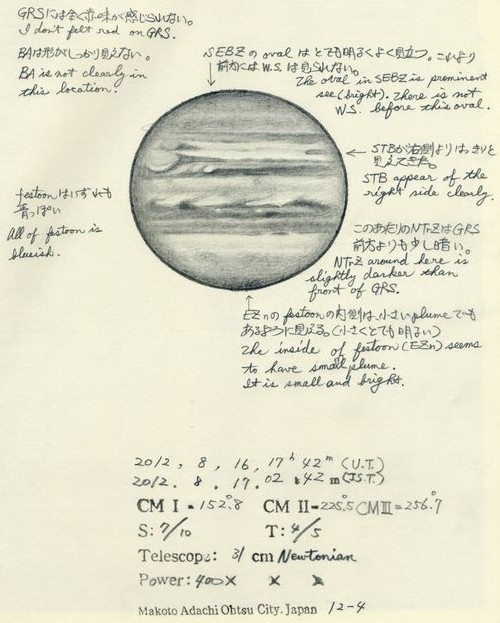 GRSには全く赤味が感じられない。
I don't felt red on GRS.
BAは形がしっかり見えない。
BA is not clearly in
this location.
SEBZのovalはとても明るくよく目立つ。これより
前方にはW.S.は見られない。
The oval in SEBZ is prominent
see (bright). There is not
W.S. before this oval.
STBが右側よりはっきりと
見えてきた。
STB appear of the
right side clearly.
festoonはいずれも
青っぽい
All of festoon is
blueish.
このあたりのNTrZはGRS
前方よりも少し暗い。
NTrZ around here is
slightly darker than
front of GRS.
EZnのfestoonの内側は、小さいplumeでも
あるように見える。(小さくとても明るい)
The inside of festoon (EZn) seems
to have small plume.
It is small and bright.
2012, 8, 16, 17h 42m (U.T.)
2012. 8. 17. 02 h 42 m (JS.T.)
CM I = 152.°8 CM II = 225.°5 CM III = 256.°7
S: 7/10 T: 4/5
Telescope: 31 cm Newtonian
Power: 400× × ×
Makoto Adachi Ohtsu City. Japan 12-4